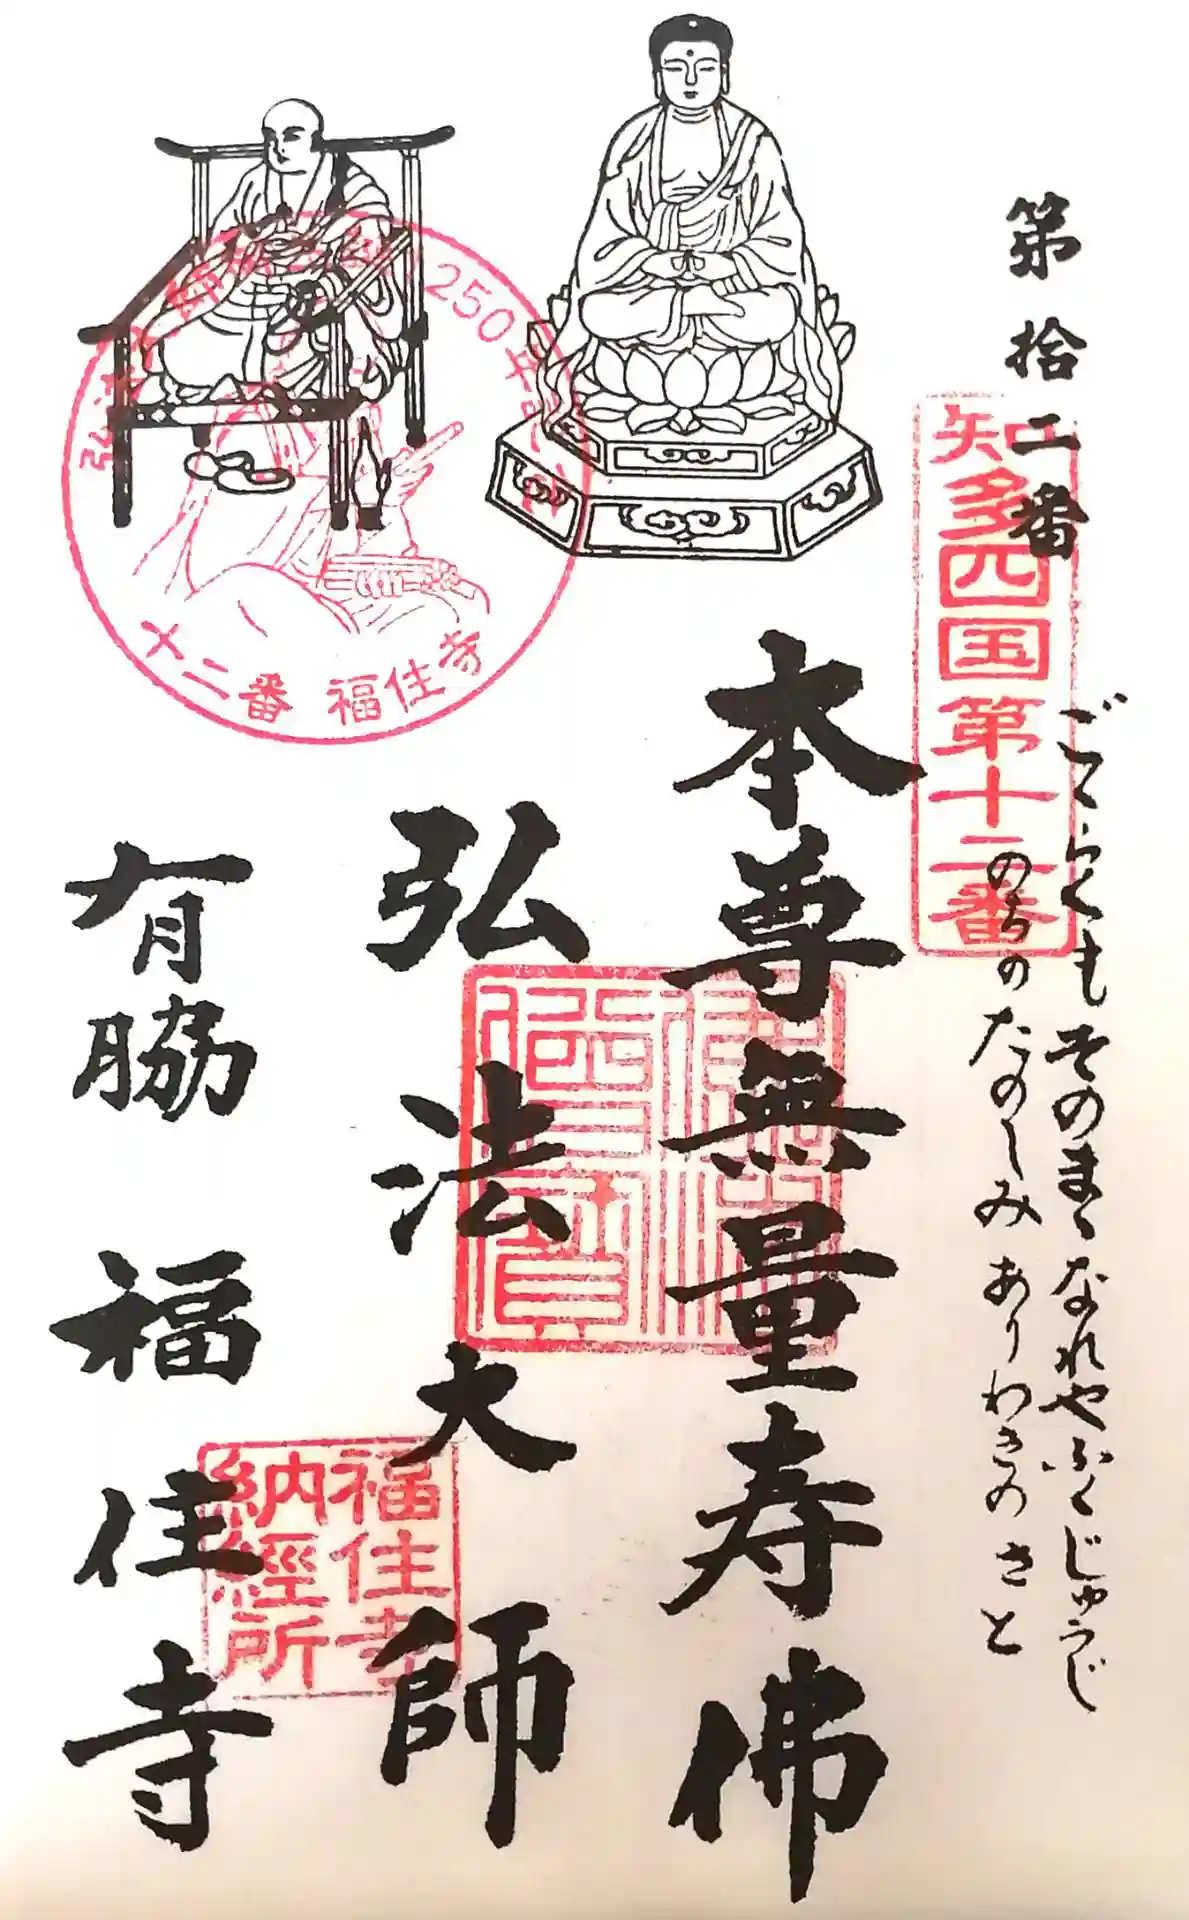 第拾二番
知多四国第十二番
ごくらくもそのまゝなれやふくじゅうじ
のちのたのしみありわきのさと
本尊無量寿佛
弘法大師
有脇 福住寺
250年
十二番 福住寺
佛法
僧寶
福住寺
納経所